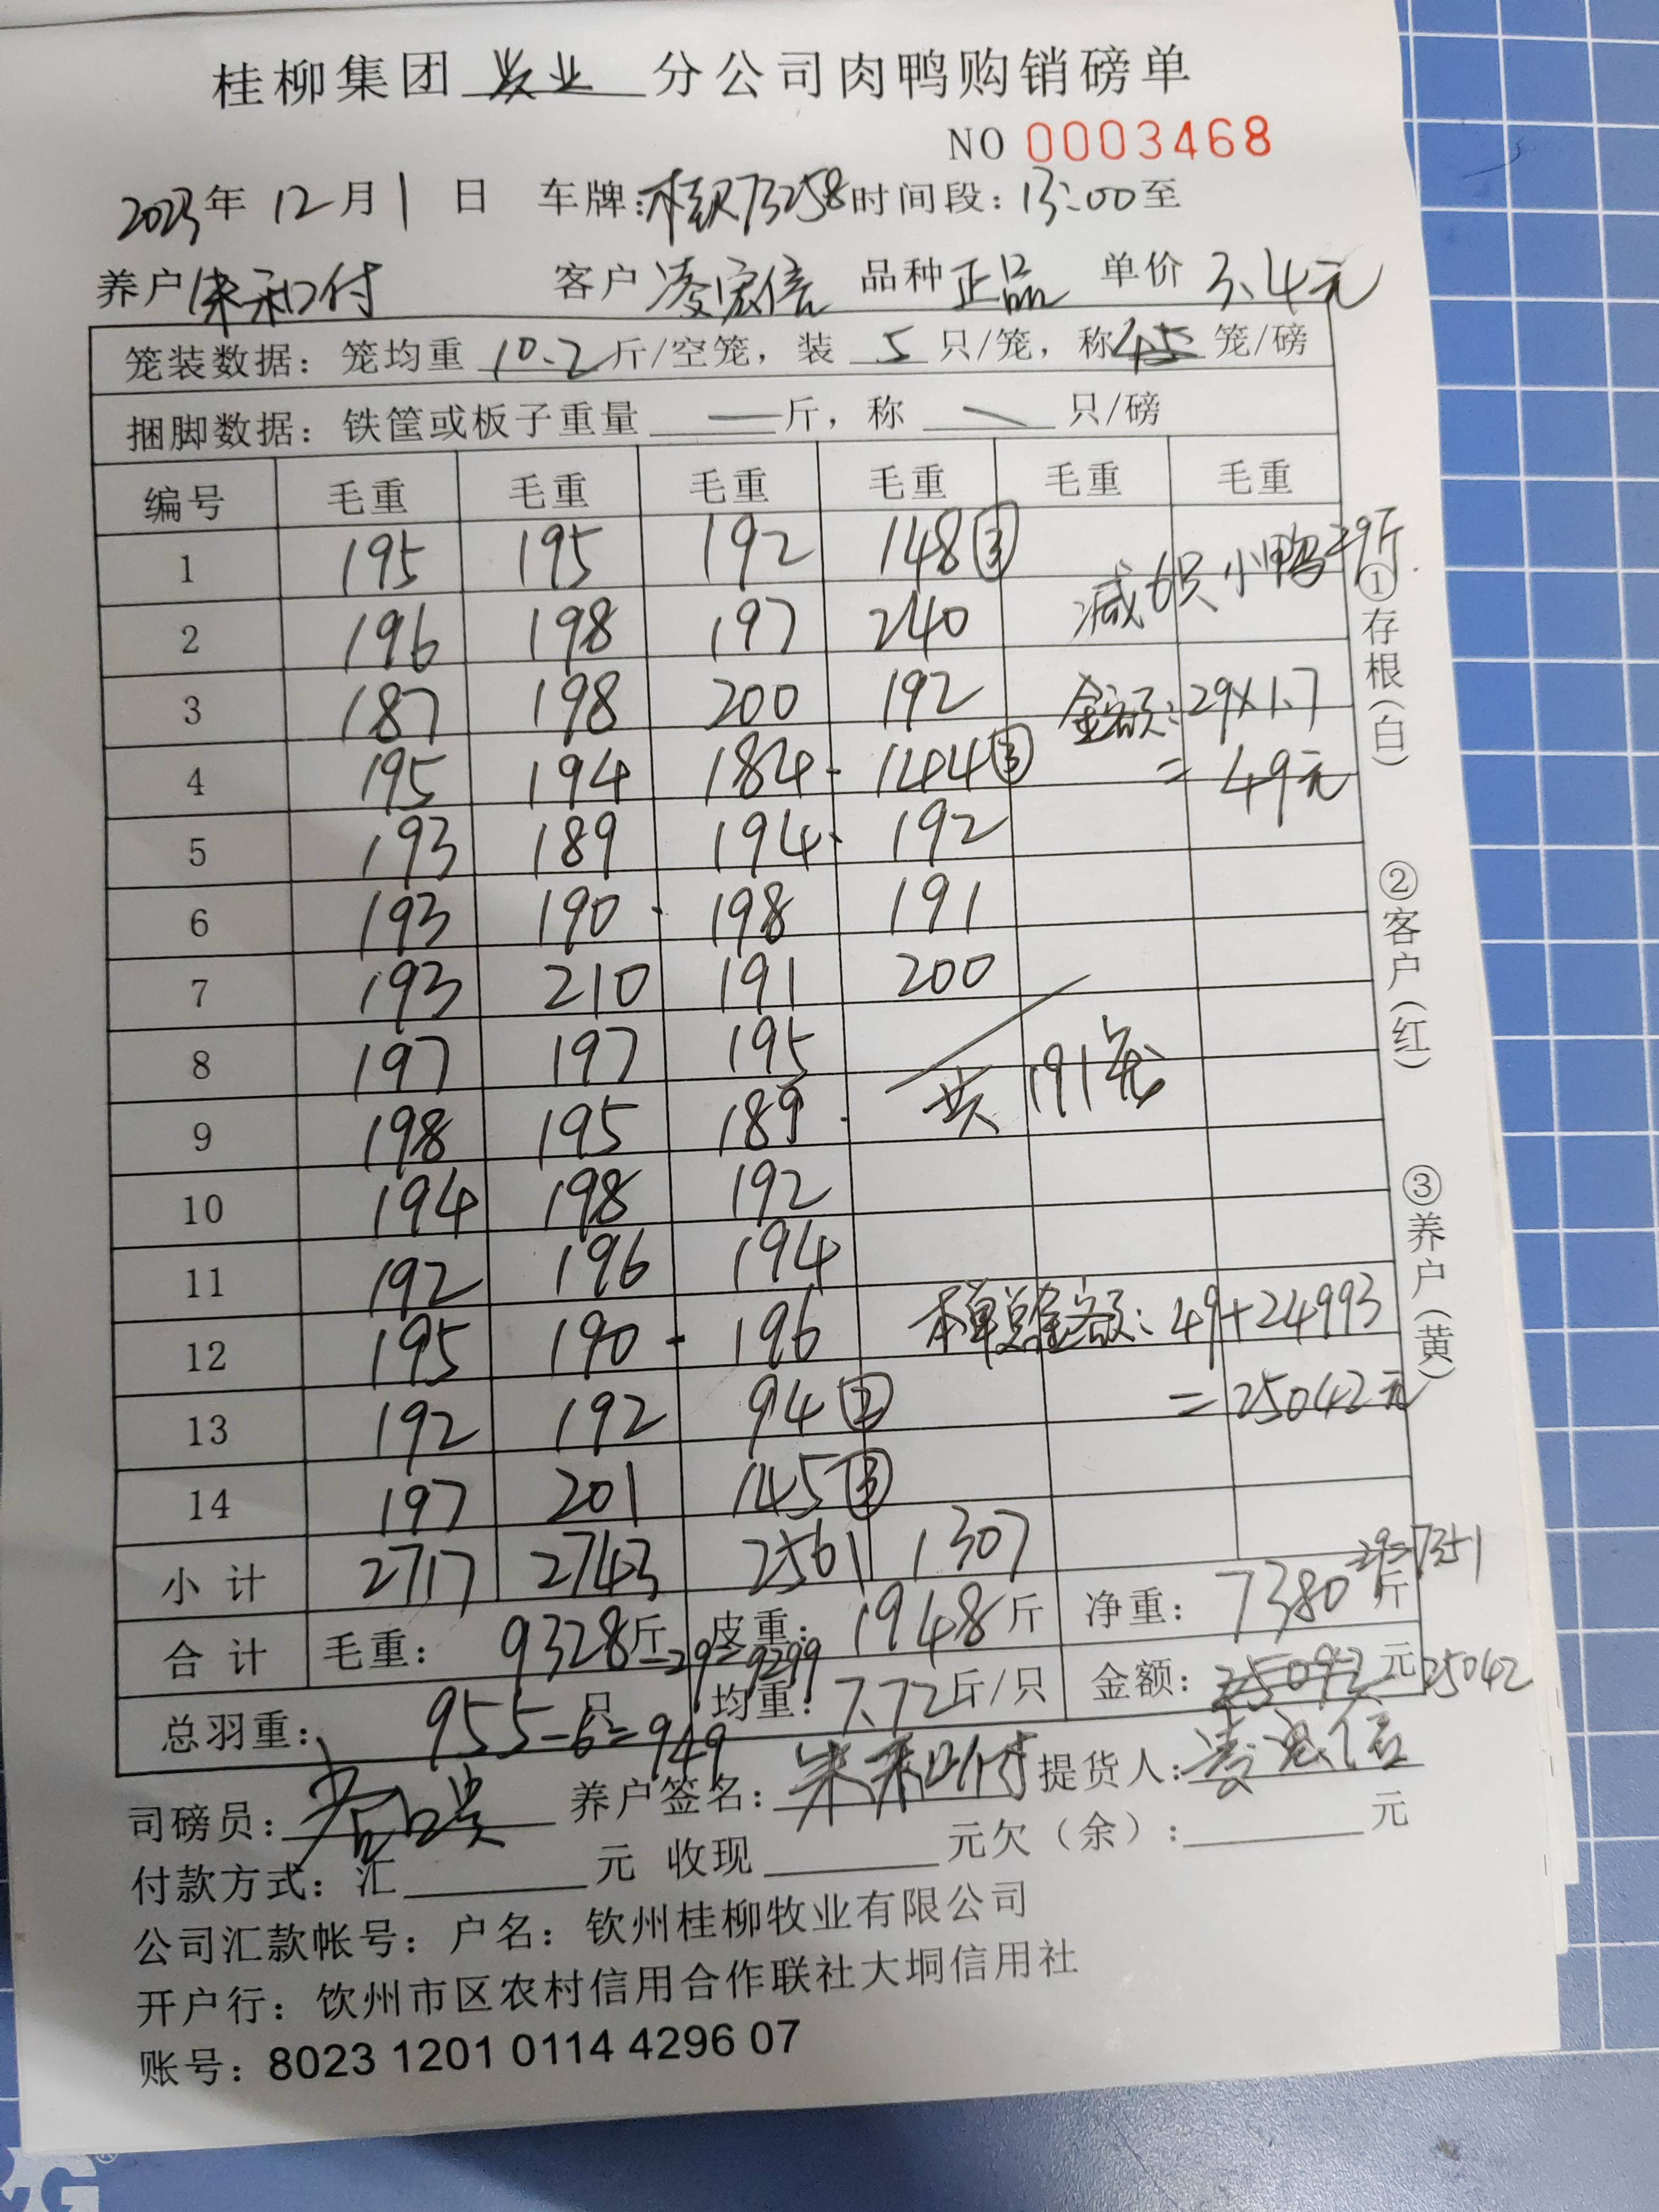 桂柳集团 牧业 分公司肉鸭购销磅单
NO 0003468
2023年 12月1日 车牌:桂R73258时间段:13:00至
养户 朱和付 客户 凌宏信 品种 正品 单价 3.4元
笼装数据:笼均重 10.2 斤/空笼,装 5 只/笼,称 4.5 笼/磅
捆脚数据:铁筐或板子重量 — 斤,称 \ 只/磅
编号 毛重 毛重 毛重 毛重 毛重 毛重
1 195 195 192 148③ 减6只小鸭29斤
2 196 198 197 240
3 187 198 200 192 金额:29×1.7
4 195 194 184 144③ =49元
5 193 189 194 192
6 193 190 198 191
7 193 210 191 200
8 197 197 195
9 198 195 189 共191笼
10 194 198 192
11 192 196 194
12 195 190 196 本单总金额:49+24993
13 192 192 94② =25042元
14 197 201 145③
小计 2717 2743 2561 1307
合计 毛重: 9328斤-29=9299 皮重: 1948斤 净重: 7380斤-29=7351
总羽重: 955只-6=949 均重: 7.72斤/只 金额: 25092元 25042
司磅员: 养户签名: 朱和付 提货人: 凌宏信
付款方式:汇 元 收现 元欠(余): 元
公司汇款帐号:户名:钦州桂柳牧业有限公司
开户行:饮州市区农村信用合作联社大垌信用社
账号:8023 1201 0114 4296 07
①存根(白)
②客户(红)
③养户(黄)